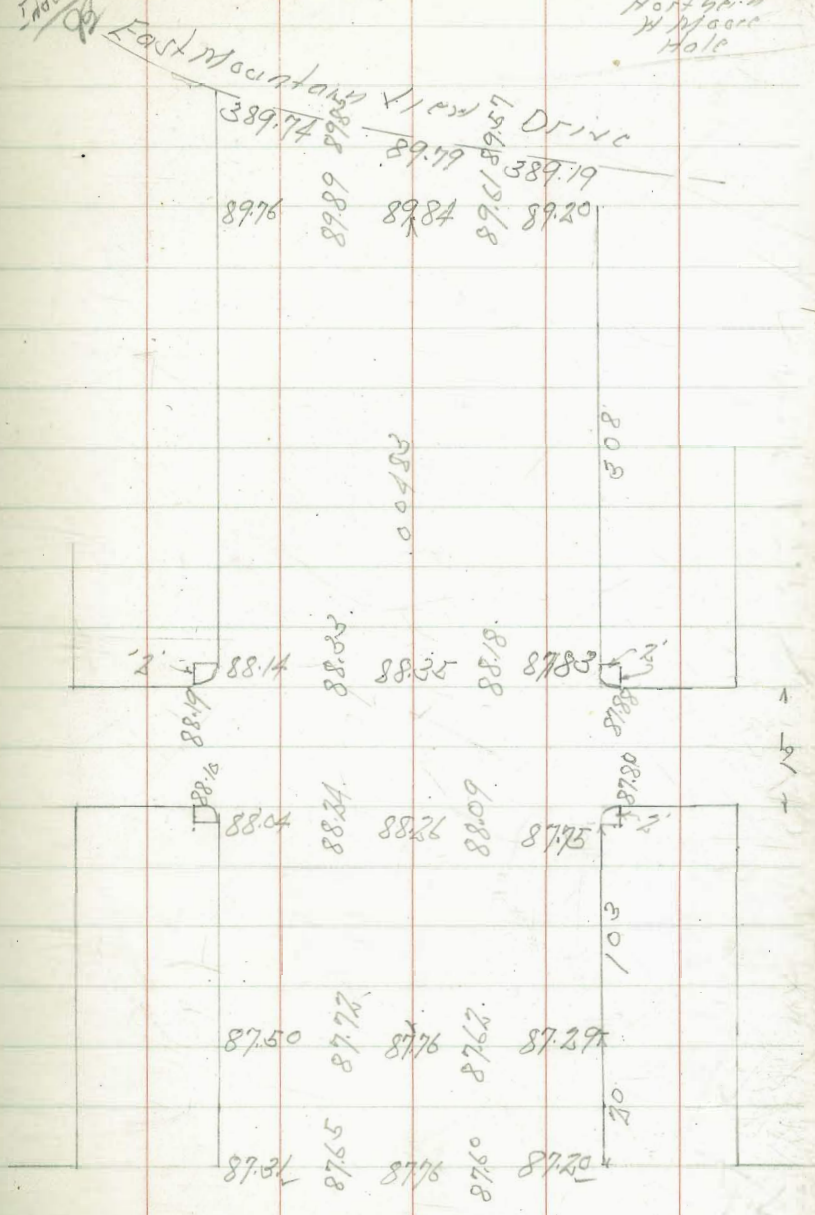 East Mountain View Drive
W Moore
Hole
389.74 89.85 89.79 89.57 389.19
89.76 89.89 89.84 89.61 89.20
308
00485
2' 88.14 88.35 88.35 88.18 87.83 2'
88.19 87.88
15
88.16 87.80
88.04 88.24 88.26 88.09 87.75 2'
103
87.50 87.72 87.76 87.62 87.29
20
87.31 87.65 87.76 87.60 87.20